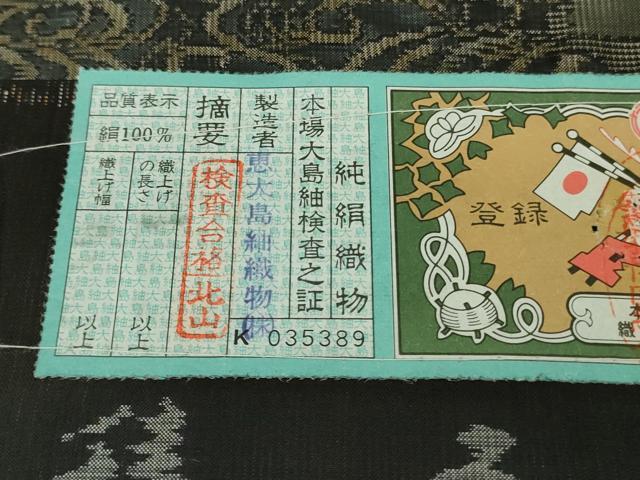 純絹織物
本場大島紬検査之証
製造者
恵大島紬織物㈱
K 035389
摘要
検査合格北山
品質表示
絹100%
織上げの長さ
以上
織上げ幅
以上
登録